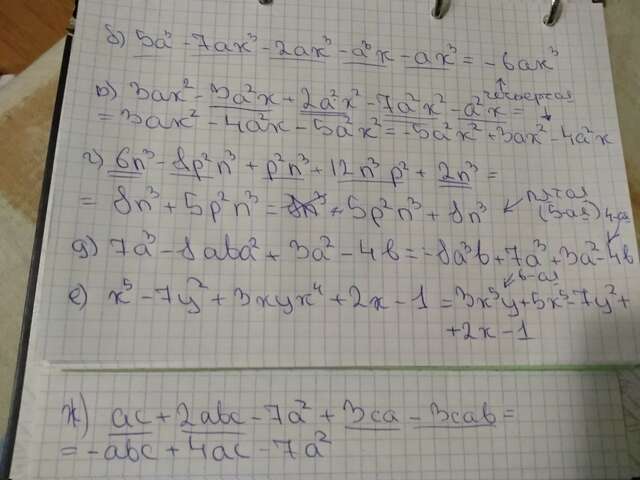 б) 5a³ - 7ax³ - 2ax³ - a³x - ax³ = -6ax³
четвертая
в) 3ax² - 3a²x + 2a²x² - 7a²x² - a²x =
= 3ax² - 4a²x - 5a²x² = -5a²x² + 3ax² - 4a²x
г) 6n³ - 8p²n³ + p²n³ + 12n³p² + 2n³ =
= 8n³ + 5p²n³ = 8n³ + 5p²n³ + 8n³ пятая (5-ая)
4-ая
д) 7a³ - 8aba² + 3a² - 4b = -8a³b + 7a³ + 3a² - 4b
6-ая
е) x⁵ - 7y² + 3xyx⁴ + 2x - 1 = 3x⁵y + 5x⁵ - 7y² +
+ 2x - 1
ж) ac + 2abc - 7a² + 3ca - 3cab =
= -abc + 4ac - 7a²